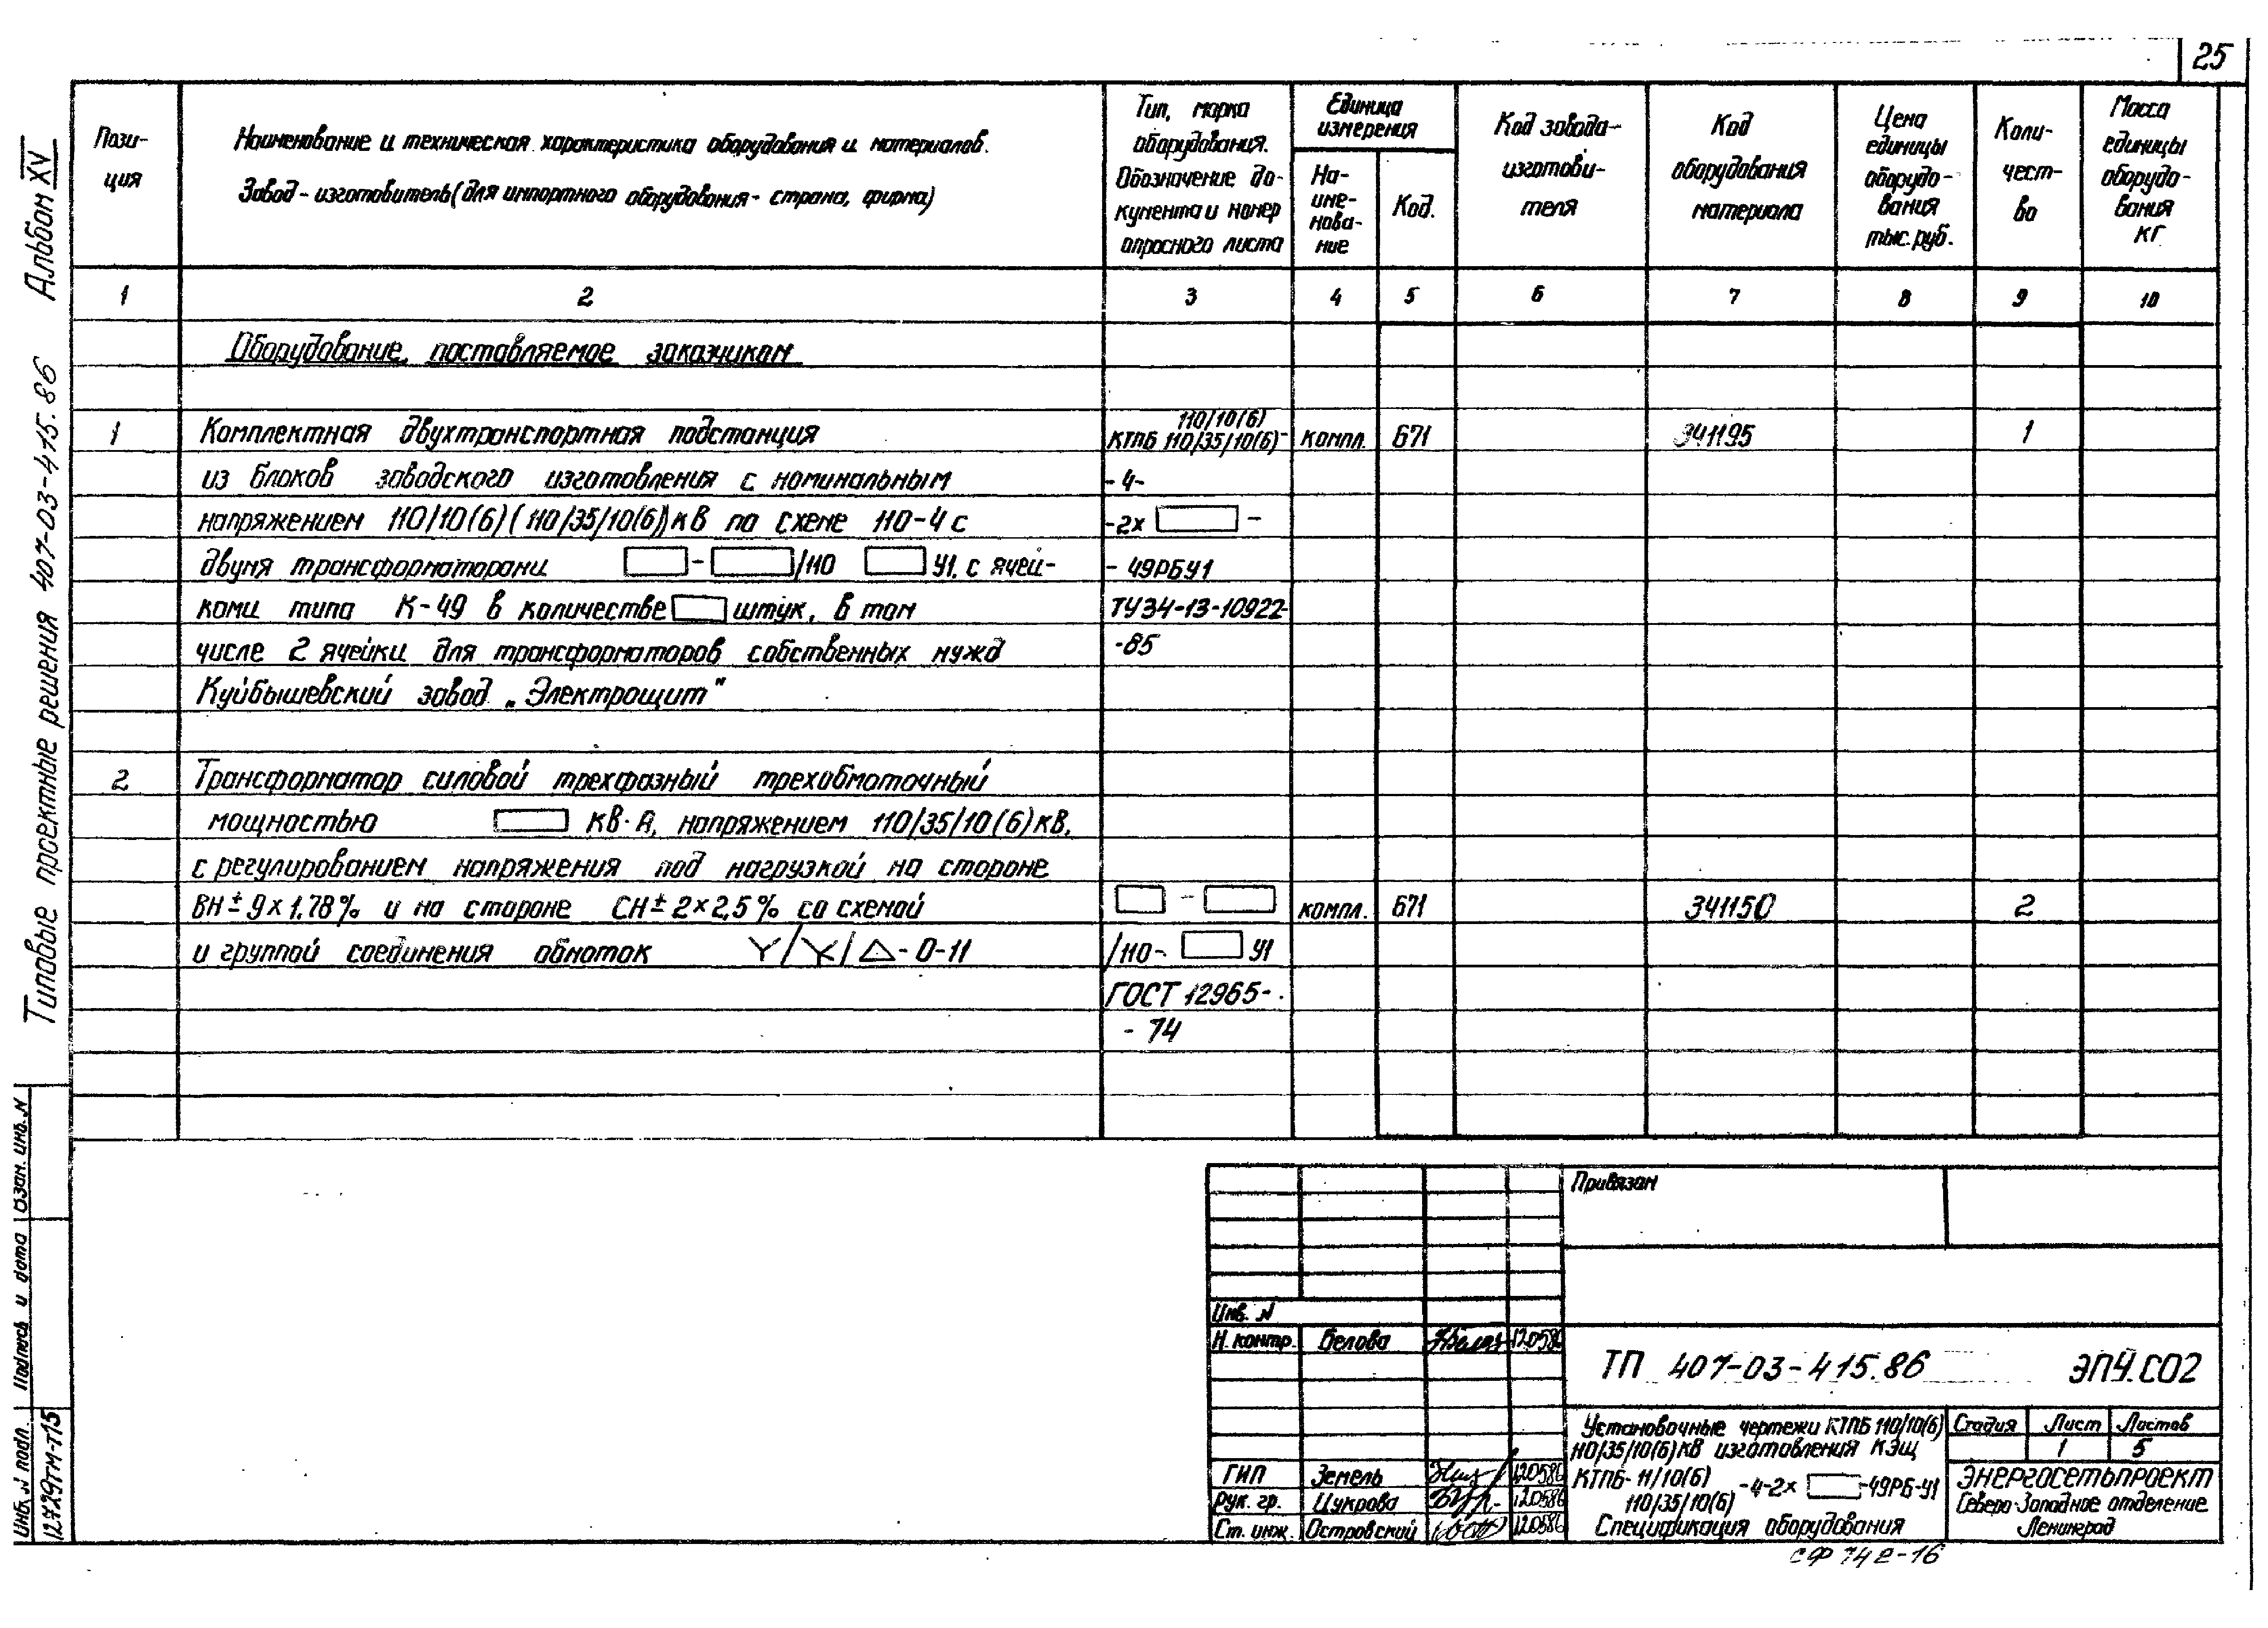 25
Альбом XV
Типовые проектные решения 407-03-415.86
Пози-
ция
Наименование и техническая характеристика оборудования и материалов.
Завод-изготовитель (для импортного оборудования - страна, фирма)
Тип, марка
оборудования.
Обозначение до-
кумента и номер
опросного листа
Единица
измерения
На-
име-
нова-
ние
Код.
Код завода-
изготови-
теля
Код
оборудования
материала
Цена
единицы
оборудо-
вания
тыс. руб.
Коли-
чест-
во
Масса
единицы
оборудо-
вания
кг
1 2 3 4 5 6 7 8 9 10
Оборудование, поставляемое заказчиком
110/10(6)
1 Комплектная двухтранспортная подстанция КТПБ 110/35/10(6)- компл. 671 341195 1
из блоков заводского изготовления с номинальным -4-
напряжением 110/10(6)(110/35/10(6)) кВ по схеме 110-4 с -2х –
двумя трансформаторами - /110 У1. с ячей- - 49РБУ1
ками типа К-49 в количестве штук, в том ТУ34-13-10922-
числе 2 ячейки для трансформаторов собственных нужд -85
Куйбышевский завод „Электрощит"
2 Трансформатор силовой трехфазный трехобмоточный
мощностью кВ·А, напряжением 110/35/10(6) кВ,
с регулированием напряжения под нагрузкой на стороне
ВН ± 9×1.78% и на стороне СН ± 2×2,5% со схемой - компл. 671 341150 2
и группой соединения обмоток Y/Y/△-0-11 /110- У1
ГОСТ 12965-
- 74
Привязан
Инв. N
Н. контр. Белова 120586
ТП 407-03-415.86 ЭП4.СО2
Установочные чертежи КТПБ 110/10(6)
110/35/10(6) кВ изготовления КЭЩ
КТПБ- 11/10(6)
110/35/10(6) -4-2х -49РБ-У1
Спецификация оборудования
Стадия Лист Листов
1 5
ЭНЕРГОСЕТЬПРОЕКТ
Северо-Западное отделение
Ленинград
ГИП Земель 120586
Рук. гр. Цукрова 120586
Ст. инж. Островский 120586
Взам. инв. N
Подпись и дата
Инв. N подл.
12729тм-т15
СФ 742-16